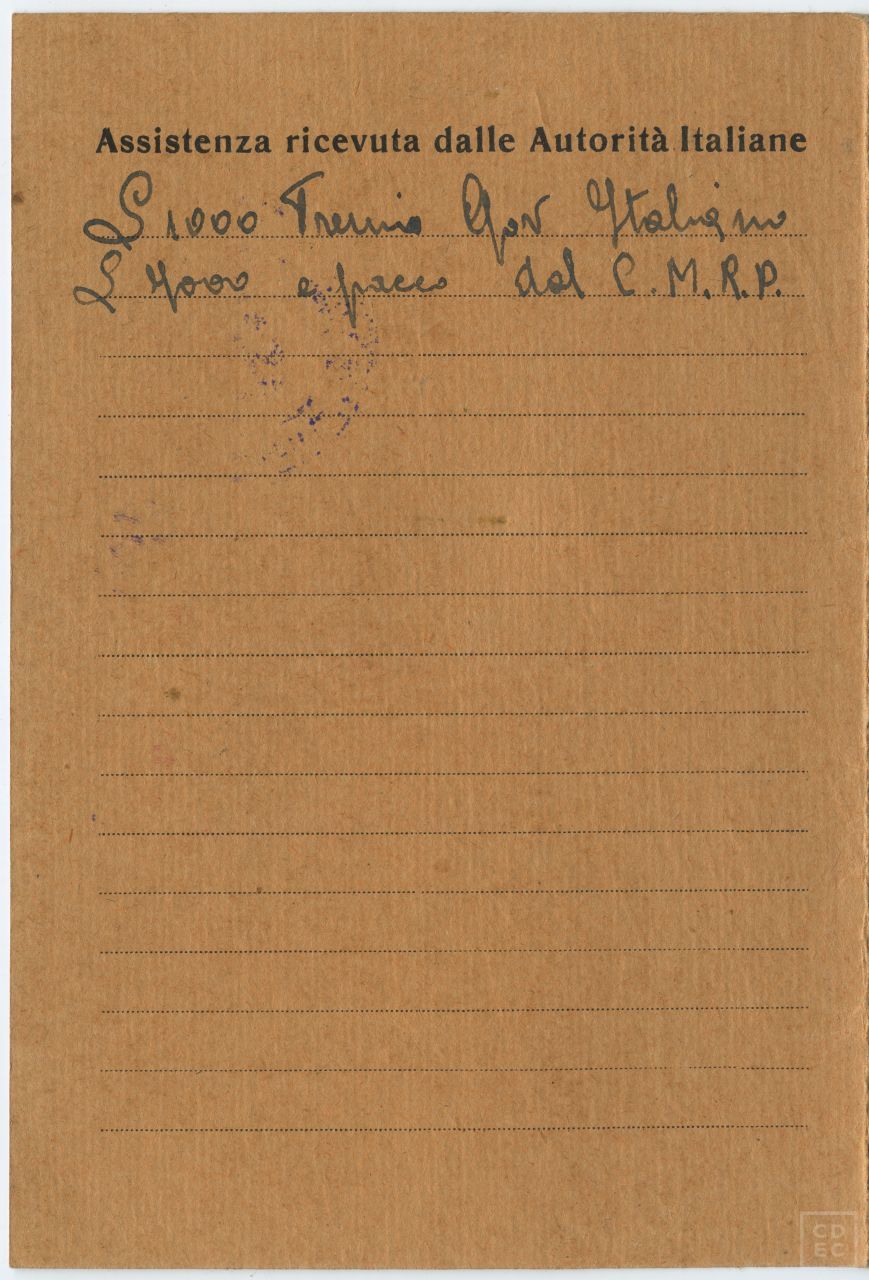 Assistenza ricevuta dalle Autorità Italiane
L 1000 Premio Gov Italiano
L 4000 e pacco dal C.M.R.P.
CD
EC